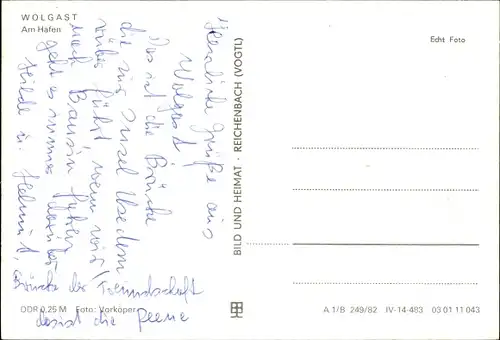 WOLGAST
Am Hafen
Herzliche Grüße aus
Wolgast
Das ist die Brücke
die zur Insel Usedom
rüber führt, wenn wir
nach Bansin fahren
geht es immer darüber
Hilde u. Helmut,
Brücke der Freundschaft
das ist die Peene
DDR 0,25 M Foto: Vorköper
BILD UND HEIMAT · REICHENBACH (VOGTL)
Echt Foto
A 1/B 249/82 IV-14-483 03 01 11 043